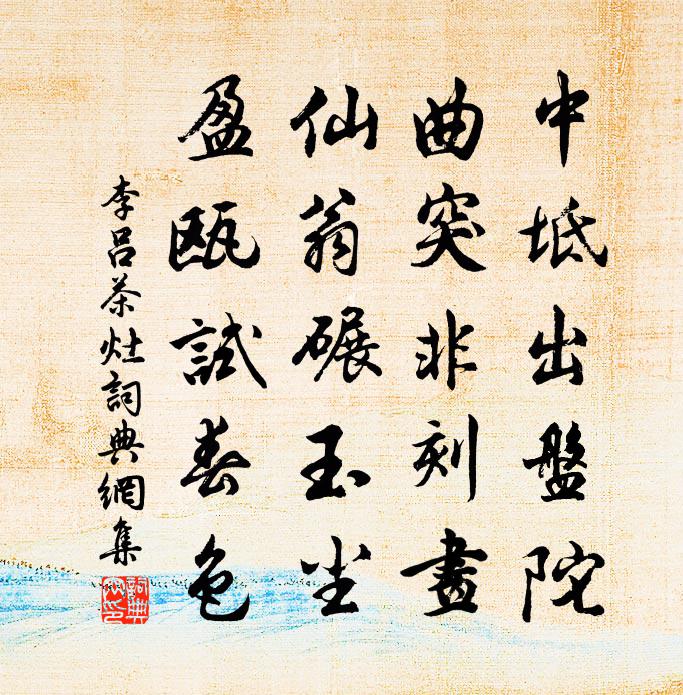 中坻出盤陀
曲突非刻畫
仙翁碾玉尘
盈甌試春色
李呂茶灶詞典網集